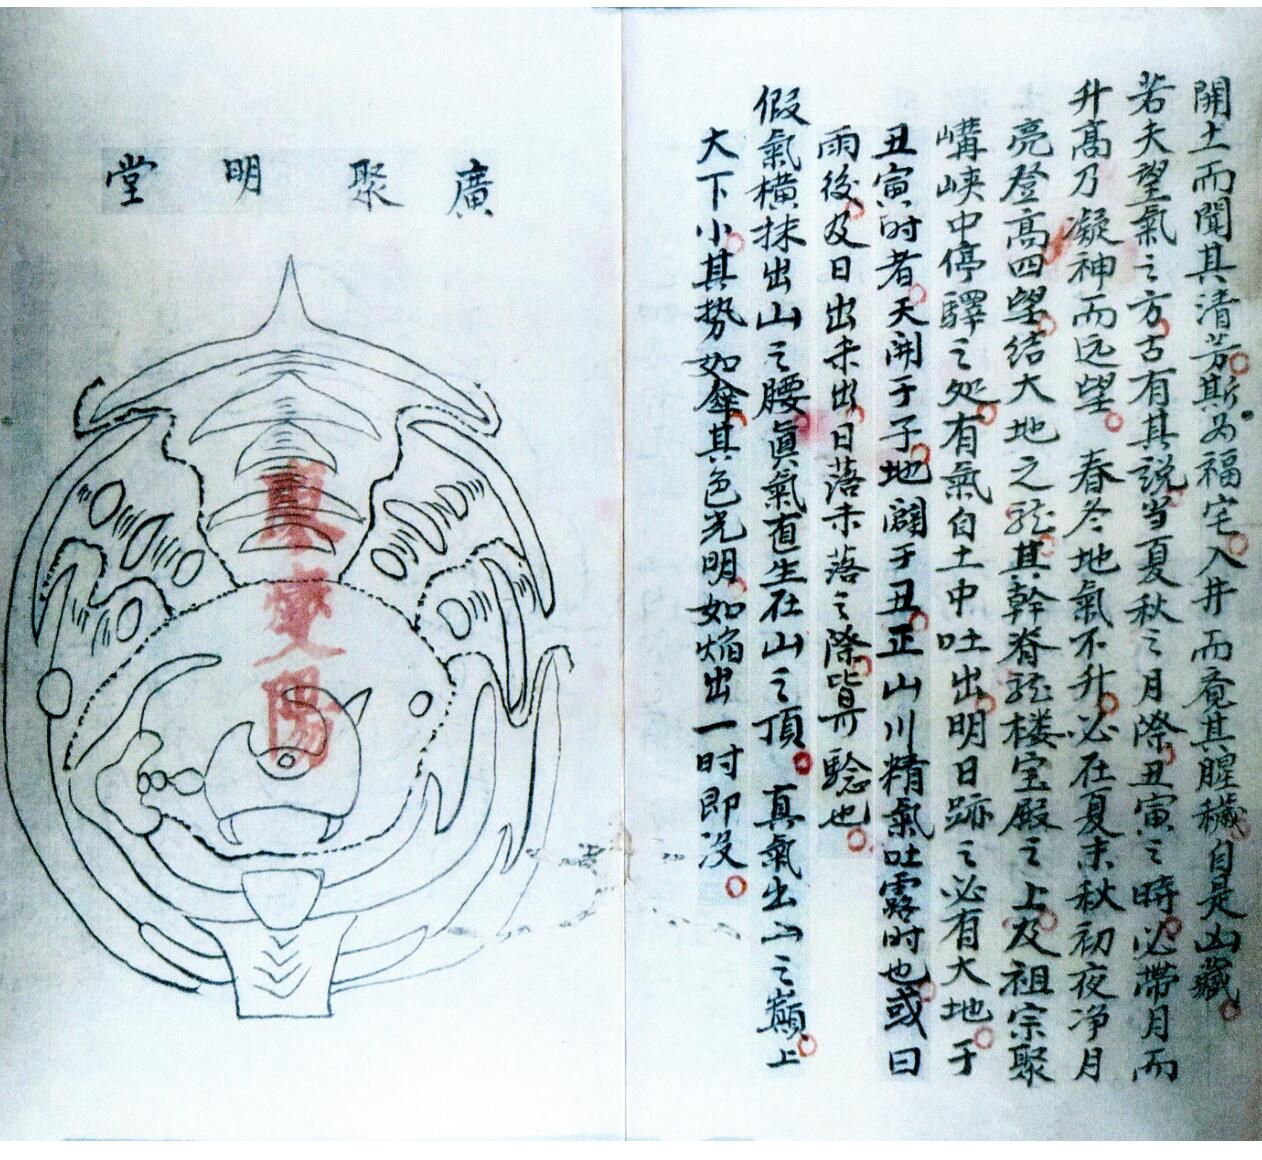 開土而聞其清芳斯為福宅入井而覔其腥穢自是凶藏
若夫望氣之方古有其説当夏秋之月際丑寅之時必帶月而
升高乃凝神而远望春冬地氣不升必在夏末秋初夜净月
亮登高四望结大地之龍其幹脊龍楼宝殿之上及祖宗聚
講峡中停驛之处有氣自土中吐出明日跡之必有大地于
丑寅时者天開于子地闢于丑正山川精氣吐露时也或曰
雨後及日出未出日落未落之際皆可騐也
假氣横抹出山之腰眞氣直生在山之頂真氣出山之巔上
大下小其势如傘其色光明如焰出一时即没
廣聚明堂